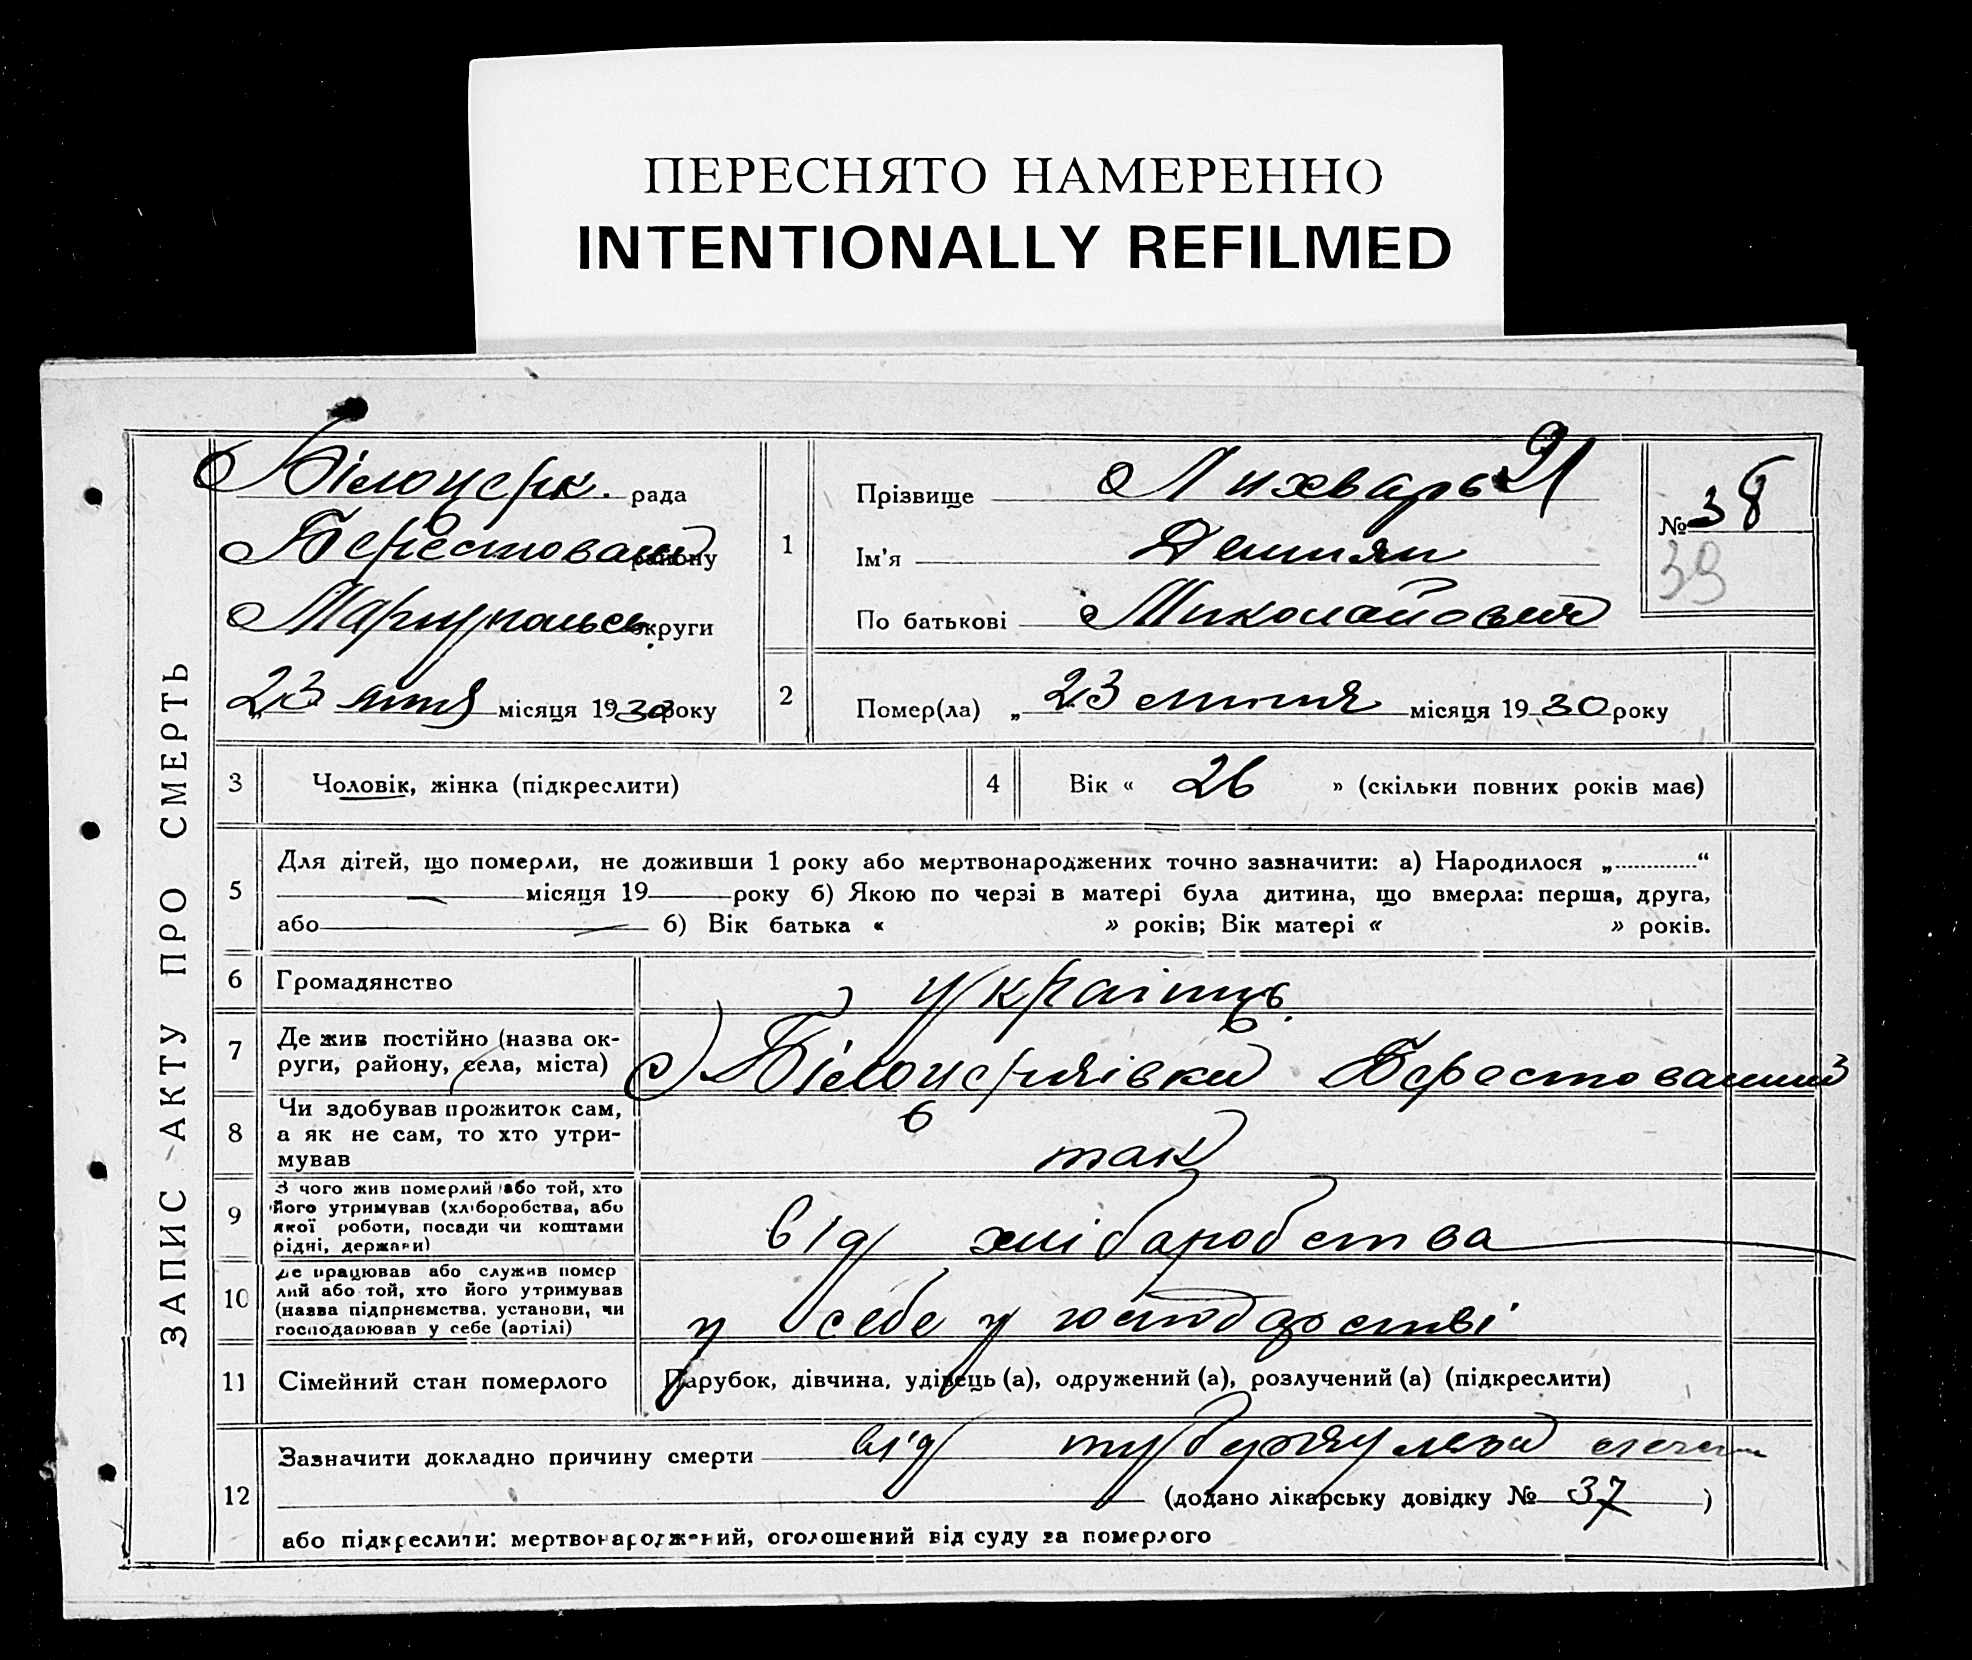 ПЕРЕСНЯТО НАМЕРЕННО
INTENTIONALLY REFILMED
ЗАПИС АКТУ ПРО СМЕРТЬ
Білоцерк. рада
району
Маріупольськ. округи
„23 липня місяця 1930 року
1
Прізвище Лихварь 21
Ім'я Демиян
По батькові Миколайович
№ 38
39
2
Помер(ла) „23 липня місяця 1930 року
3 Чоловік, жінка (підкреслити)
4 Вік « 26 » (скільки повних років має)
5
Для дітей, що померли, не доживши 1 року або мертвонароджених точно зазначити: а) Народилося „ “
місяця 19 року б) Якою по черзі в матері була дитина, що вмерла: перша, друга,
або б) Вік батька « » років; Вік матері « » років.
6 Громадянство україинець
7
Де жив постійно (назва ок-
руги, району, села, міста)
с) Білоцерківки
8
Чи здобував прожиток сам,
а як не сам, то хто утри-
мував
так
9
З чого жив померлий або той, хто
його утримував (хліборобства, або
якої роботи, посади чи коштами
рідні, держави)
від хлібаробства
10
Де працював або служив помер
лий або той, хто його утримував
(назва підприємства, установи, чи
господарював у себе (артілі)
у себе у господарстві
11 Сімейний стан померлого Парубок, дівчина, удівець (а), одружений (а), розлучений (а) (підкреслити)
12
Зазначити докладно причину смерти від туберкулёза легень
(додано лікарську довідку № 37 )
або підкреслити: мертвонароджений, оголошений від суду за померлого